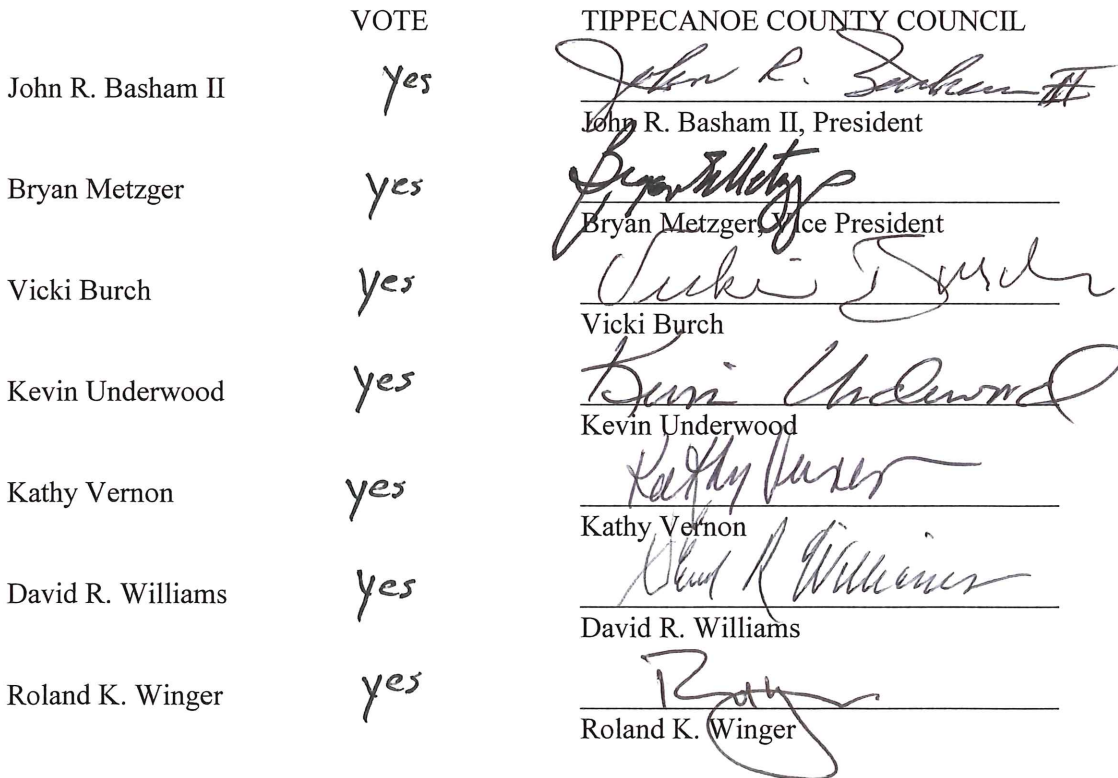 VOTE TIPPECANOE COUNTY COUNCIL
John R. Basham II yes John R. Basham II
John R. Basham II, President
Bryan Metzger yes Bryan E Metzger
Bryan Metzger, Vice President
Vicki Burch yes Vicki Burch
Vicki Burch
Kevin Underwood yes Kevin Underwood
Kevin Underwood
Kathy Vernon yes Kathy Vernon
Kathy Vernon
David R. Williams yes David R Williams
David R. Williams
Roland K. Winger yes
Roland K. Winger